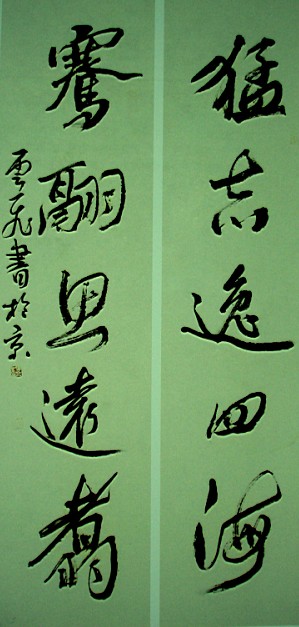 猛志逸四海
騫翮思遠翥
雲飛書於京